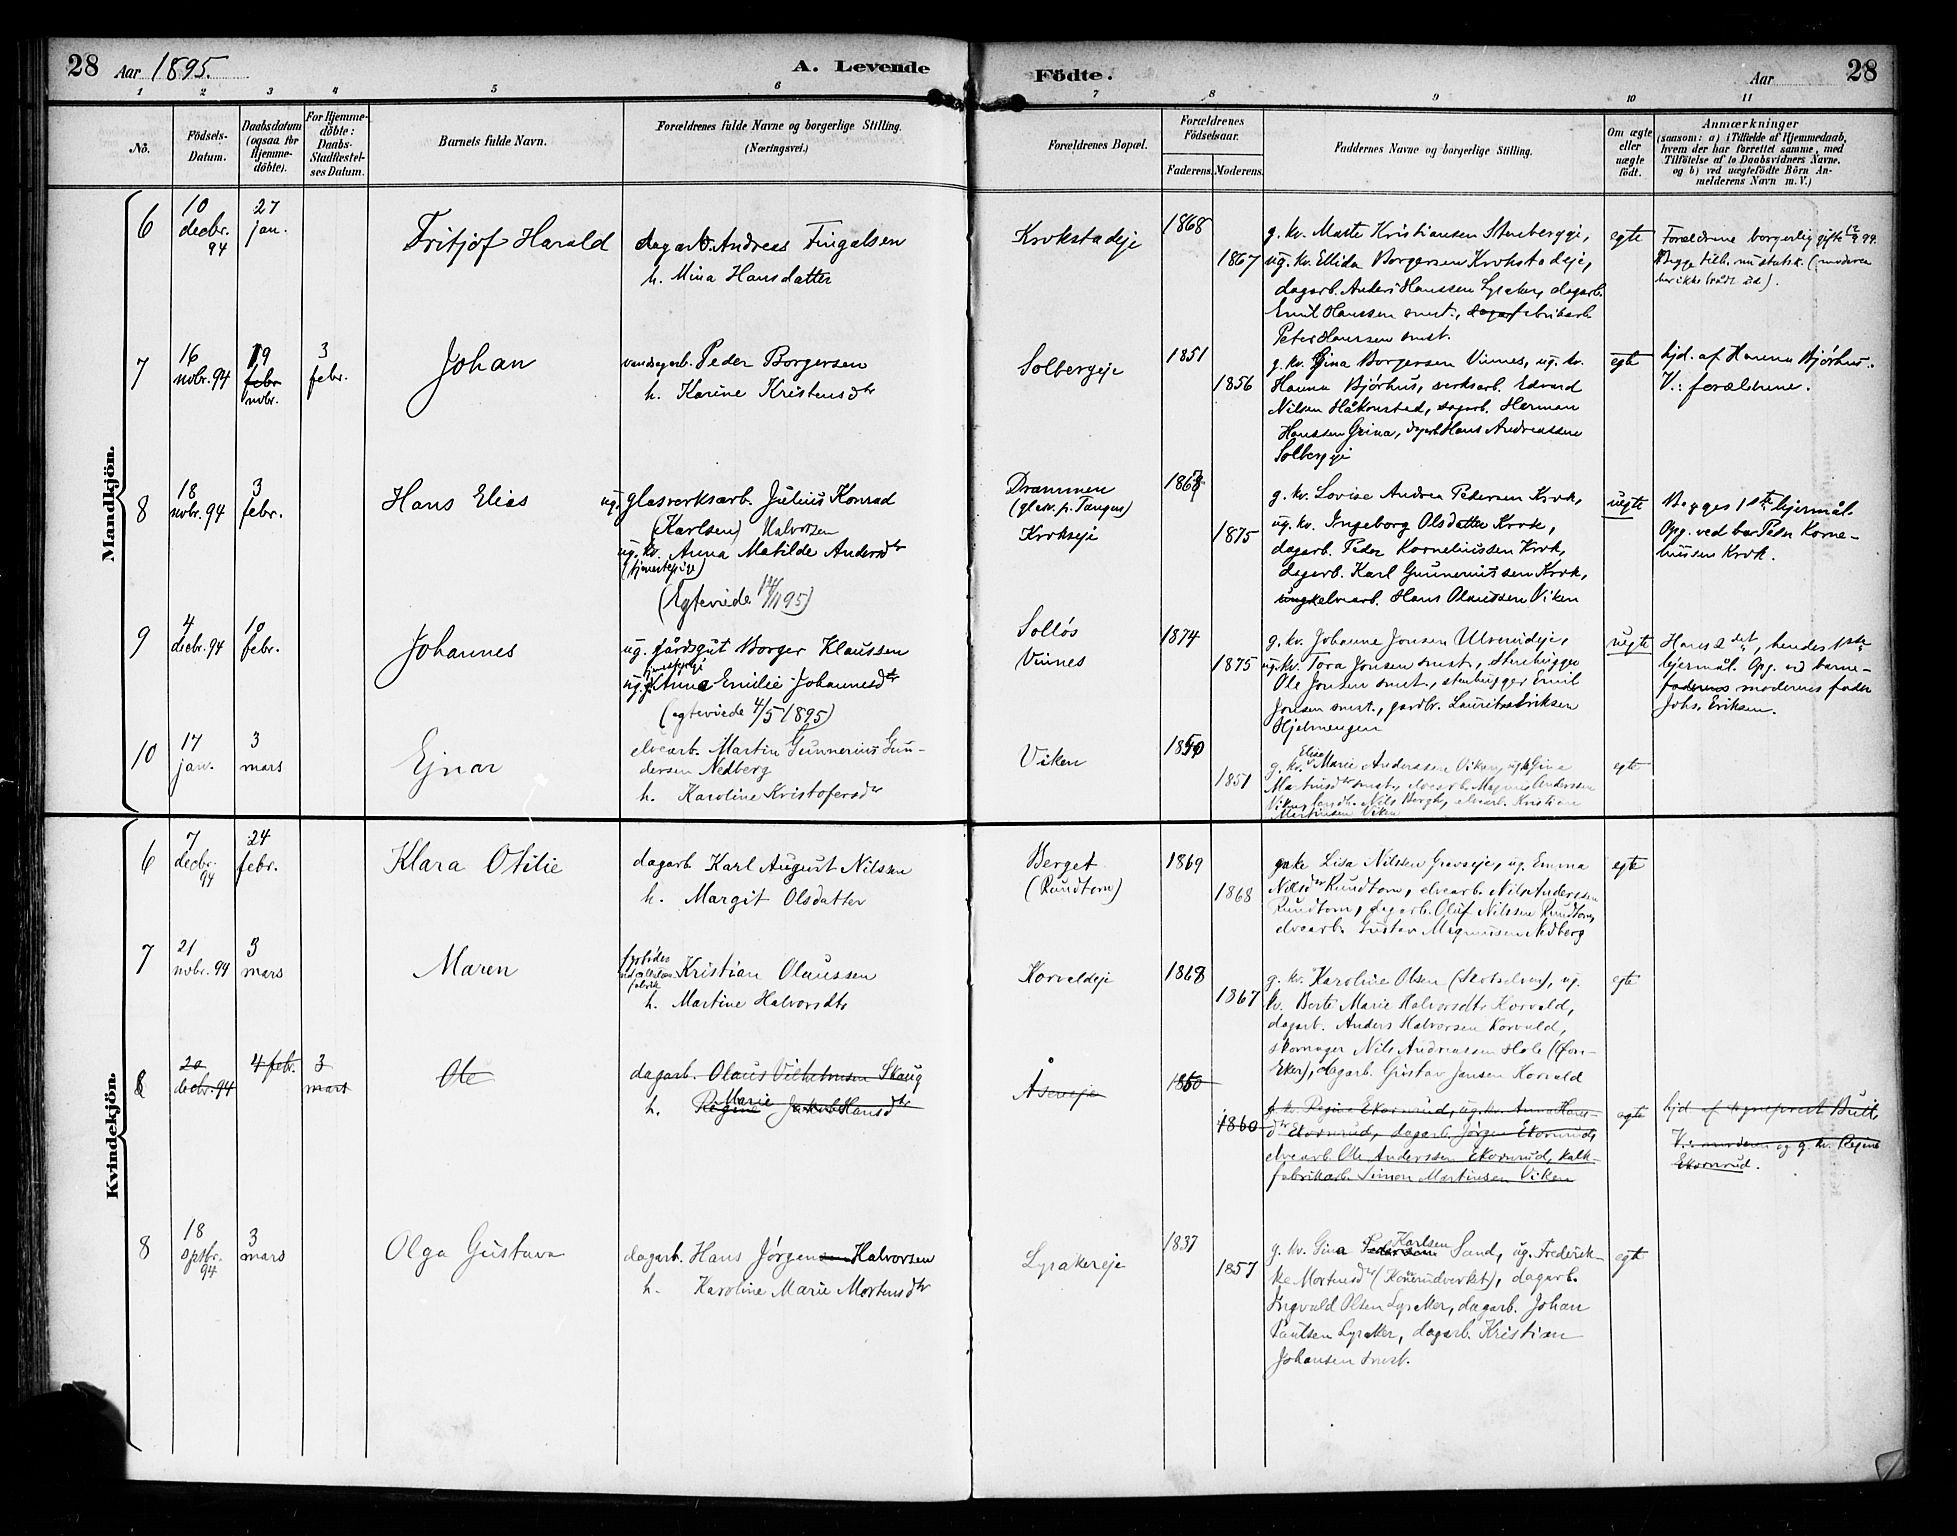 28 Aar 1895. A. Levende Födte. Aar 28
1 2 3 4 5 6 7 8 9 10 11
Nö.
Födsels-
Datum.
Daabsdatum
(ogsaa for
Hjemme-
döbte).
For Hjemme-
döbte:
Daabs-
Stadfæstel-
ses Datum.
Barnets fulde Navn.
Forældrenes fulde Navne og borgerlige Stilling.
(Næringsvei.)
Forældrenes Bopæl.
Forældrenes
Födselsaar.
Faderens.
Moderens.
Faddernes Navne og borgerlige Stilling.
Om ægte
eller
uægte
født.
Anmærkninger
(saasom: a) i Tilfælde af Hjemmedaab,
hvem der har forrettet samme, med
Tilföielse af to Daabsvidners Navne.
og b) ved uægtefödte Börn An-
melderens Navn m. V.)
Mandkjön.
6
10
decbr.
94
27
jan.
Fritjof Harald
dagarb. Andreas Fingalsen
h. Mina Hansdatter
Krokstadeje
1868
1867
g. kv. Marte Kristiansen Stenbergeje,
ug. kv. Ellida Borgersen Krokstadeje,
dagarb. Anders Hanssen Lyraker, dagarb.
Emil Hanssen smst., fabrikarb.
Peter Hanssen smst.
egte
Forældrene borgerlig gifte
Begge tilh. m statsk. (moderen
her ikke trådt ud).
7
16
novbr. 94
19
febr.
novbr.
3
febr.
Johan
Peder Borgersen
h. Karine Kristensdtr
Solbergeje
1851
1856
g. kv. Gina Borgersen Vinnes, ug. kv.
Hanna Bjørhus, verksarb. Edvard
Nilsen Håkonstad, dagarb. Herman
Hanssen Grina, dagarb. Hans Andreassen
Solbergeje
egte
hjd. af Hanna Bjørhus.
V.: forældrene.
8
18
novbr. 94
3
febr.
Hans Elias
ug. glasverksarb. Julius Konrad
(Karlsen) Halvorsen
ug. kv. Anna Matilde Andersdtr
(tjenestepige)
(Egteviede 14/11 95)
Drammen
(glasv. p. Tangen)
Krokseje
1875
g. kv. Lovise Andrea Pedersen Krok,
ug. kv. Ingeborg Olsdatter Krok,
dagarb. Peder Kornelinssen Krok,
dagarb. Karl Gunneriussen Krok,
elvearb. Hans Olaussen Viken
uegte
Begges 1ste lejermål.
Opg. ved Peder Korne-
liussen Krok.
9
4
decbr. 94
10
febr.
Johannes
ug. gårdsgut Borger Klaussen
ug. Anna Emilie Johannesdtr
(egteviede 4/5 1895)
Solløs
Vinnes
1874
1875
g. kv. Johanne Jonsen
ug. kv. Tora Jonsen smst., stenhugger
Ole Jonsen smst., stenhugger Emil
Jonsen smst., gårdbr. Laurits Eriksen
Hjelmengen
uegte
Hans 2det, hendes 1ste
lejermål. Opg. ved barne-
faderens moderens fader
Johs. Eriksen.
10
17
jan.
3
mars
Ejnar
elvearb. Martin Gunnerius Gun-
dersen Nedberg
h. Karoline Kristofersdtr
Viken
1851
g. kv. Elise Marie Anderssen Viken, Gina
Martinsdtr smst., elvearb. Magnus Anderssen
Viken, Nils Bergh, elvearb. Kristian
Martinsen Viken
egte
Kvindekjön.
6
7
decbr.
94
24
febr.
Klara Otilie
dagarb. Karl August Nilssen
h. Margit Olsdatter
Berget
(Rundtom)
1869
1868
Lisa Nilssen Gravseje, ug. Emma
Nilsdtr Rundtom, elvearb. Nils Anderssen
Rundtom, dagarb. Oluf Nilssen Rundtom,
elvearb. Gustav Magnussen Nedberg
egte
7
21
novbr. 94
3
mars
Maren
fyrbøder
Kristian Olaussen
h. Martine Halvorsdtr
Korvaldeje
1868
1867
g. kv. Karoline Olsen (Skotselven), ug.
kv. Berte Marie Halvorsdtr Korvald,
dagarb. Anders Halvorsen Korvald,
skomager Nils Andreassen Hole (Øvr-
Eker), dagarb. Gustav Jansen Korvald
egte
8
20
decbr. 94
4 febr.
3
mars
Ole
dagarb. Olaus Vilhelmsen Skaug
h. Regine Marie Jakob Hansdtr
Åseneje
1850
1860
g. kv. Regine Ekornrud, ug. kv. Anna Hans-
dtr Ekornrud, dagarb. Jørgen Ekornrud,
elvearb. Ole Anderssen Ekornrud, kalk-
fabrikarb. Simon Martinsen Viken
egte
hjd. af sogneprest Bull
V.: moderen og g. kv. Regine
Ekornrud.
8
18
sptbr.
94
3
mars
Olga Gustava
dagarb. Hans Jørgensen Halvorsen
h. Karoline Marie Mortensdtr
Lyrakereje
1837
1857
g. kv. Gina Pedersen Karlsen Sand, ug. Frederik-
ke Mortensdtr (Konerudverket), dagarb.
Ingvald Olsen Lyraker, dagarb. Johan
Paulsen Lyraker, dagarb. Kristian
Johansen smst.
egte